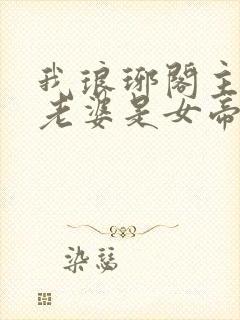 我琅琊阁主
老婆是女帝
染瑟